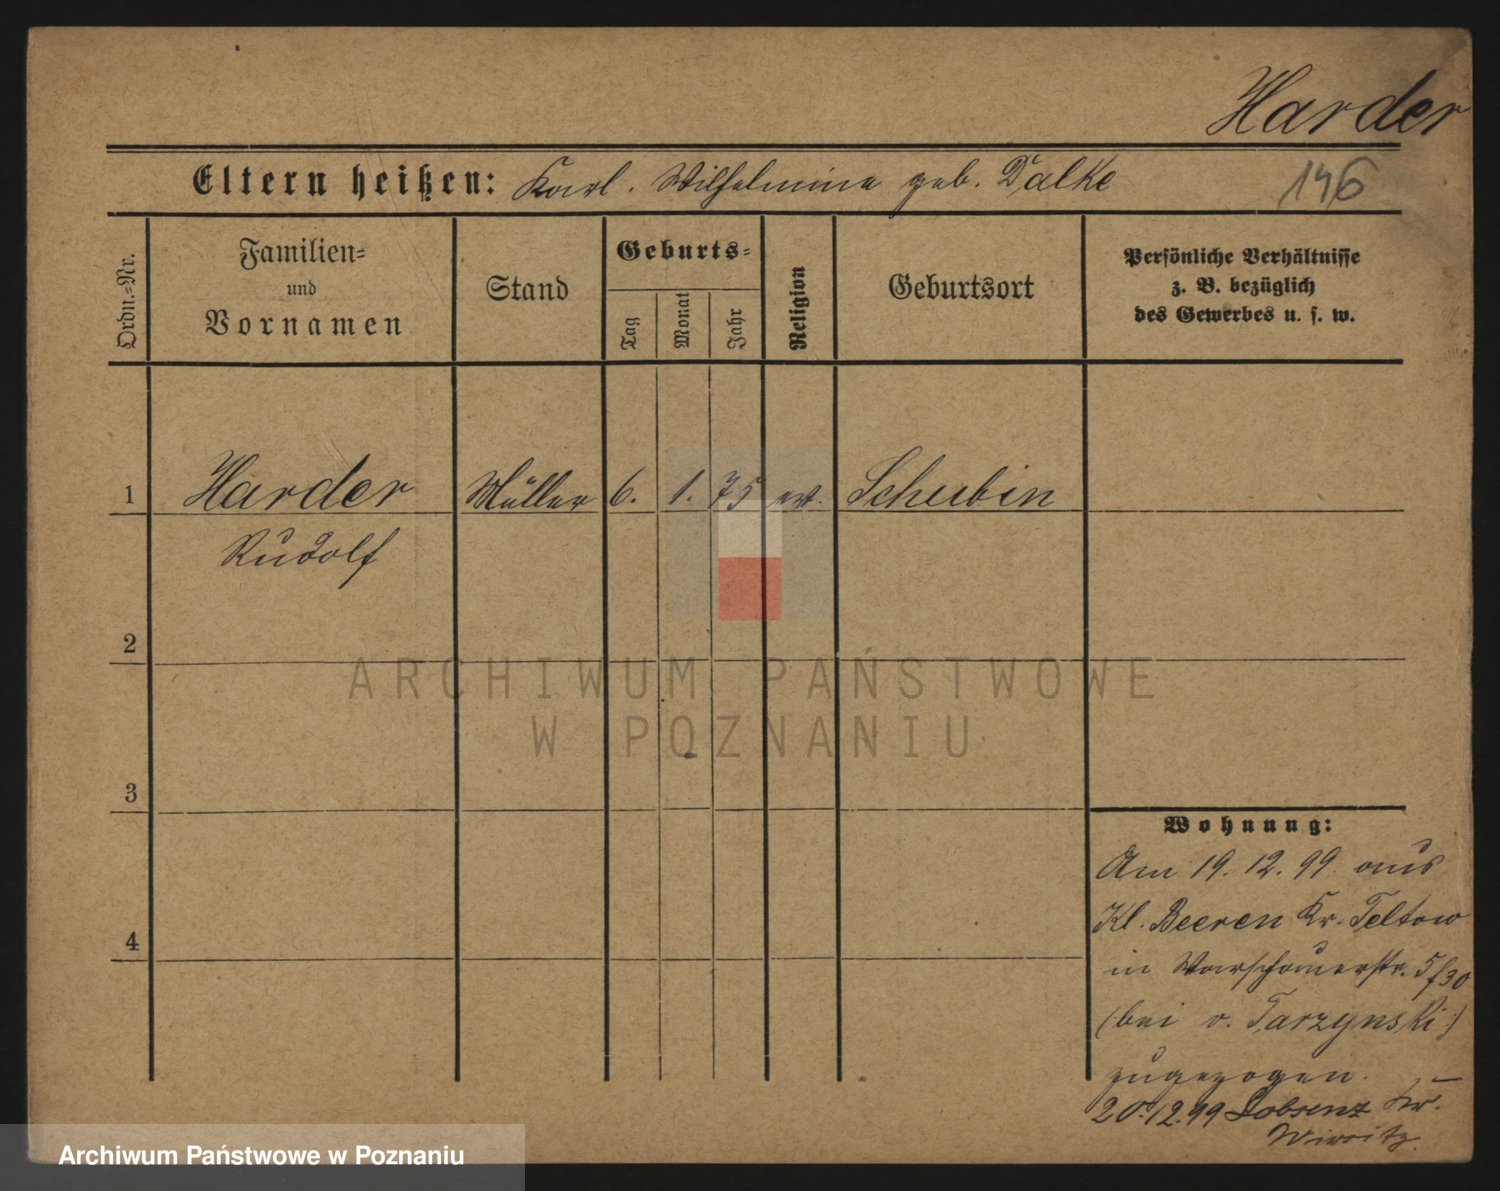 Harder
Eltern heißen: Karl. Wilhelmine geb. Dalke
146
Ordn.-Nr.
Familien-
und
Vornamen
Stand
Geburts-
Tag
Monat
Jahr
Religion
Geburtsort
Persönliche Verhältnisse
z. B. bezüglich
des Gewerbes u. s. w.
1 Harder Müller 6. 1. 75 ev. Schubin
Rudolf
2
3
4
Wohnung:
Am 19.12.99. aus
Kl. Beeren Kr. Teltow
in Warschauerstr. 5/30
(bei v. Tarzynski)
zugezogen.
20.12.99 Lobsenz Kr.
Wirsitz
ARCHIWUM PAŃSTWOWE
W POZNANIU
Archiwum Państwowe w Poznaniu